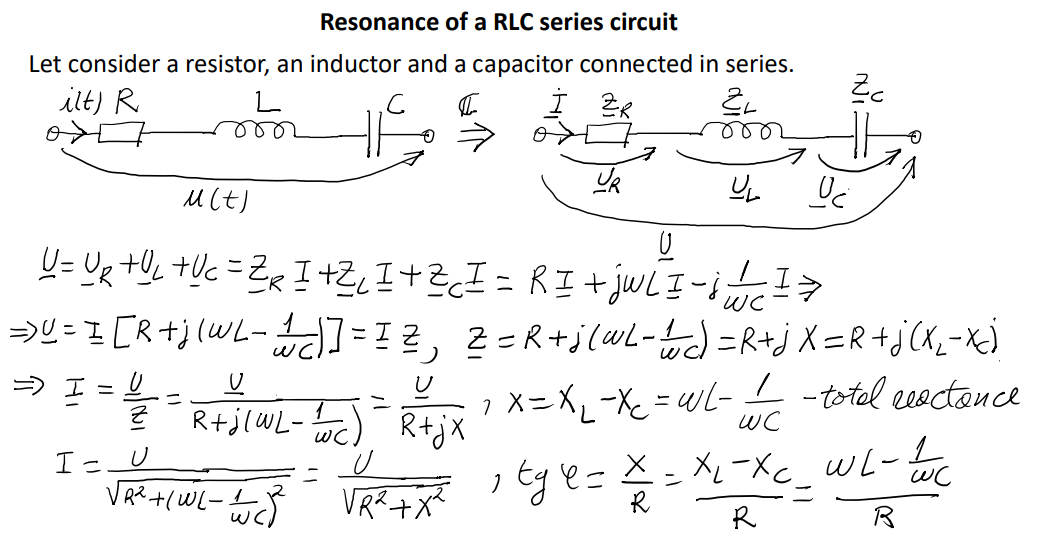 Resonance of a RLC series circuit
Let consider a resistor, an inductor and a capacitor connected in series.
i(t) R L C ℂ ⇒ I̲ Z̲_R Z̲_L Z̲_C
u(t) U̲_R U̲_L U̲_C
U̲
U̲ = U̲_R + U̲_L + U̲_C = Z̲_R I̲ + Z̲_L I̲ + Z̲_C I̲ = R I̲ + jωL I̲ - j 1/ωC I̲ ⇒
⇒ U̲ = I̲ [R + j(ωL - 1/ωC)] = I̲ Z̲, Z̲ = R + j(ωL - 1/ωC) = R + j X = R + j(X_L - X_C)
⇒ I̲ = U̲/Z̲ = U̲/(R + j(ωL - 1/ωC)) = U̲/(R + jX), X = X_L - X_C = ωL - 1/ωC - total reactance
I = U/√(R² + (ωL - 1/ωC)²) = U/√(R² + X²), tg φ = X/R = (X_L - X_C)/R = (ωL - 1/ωC)/R